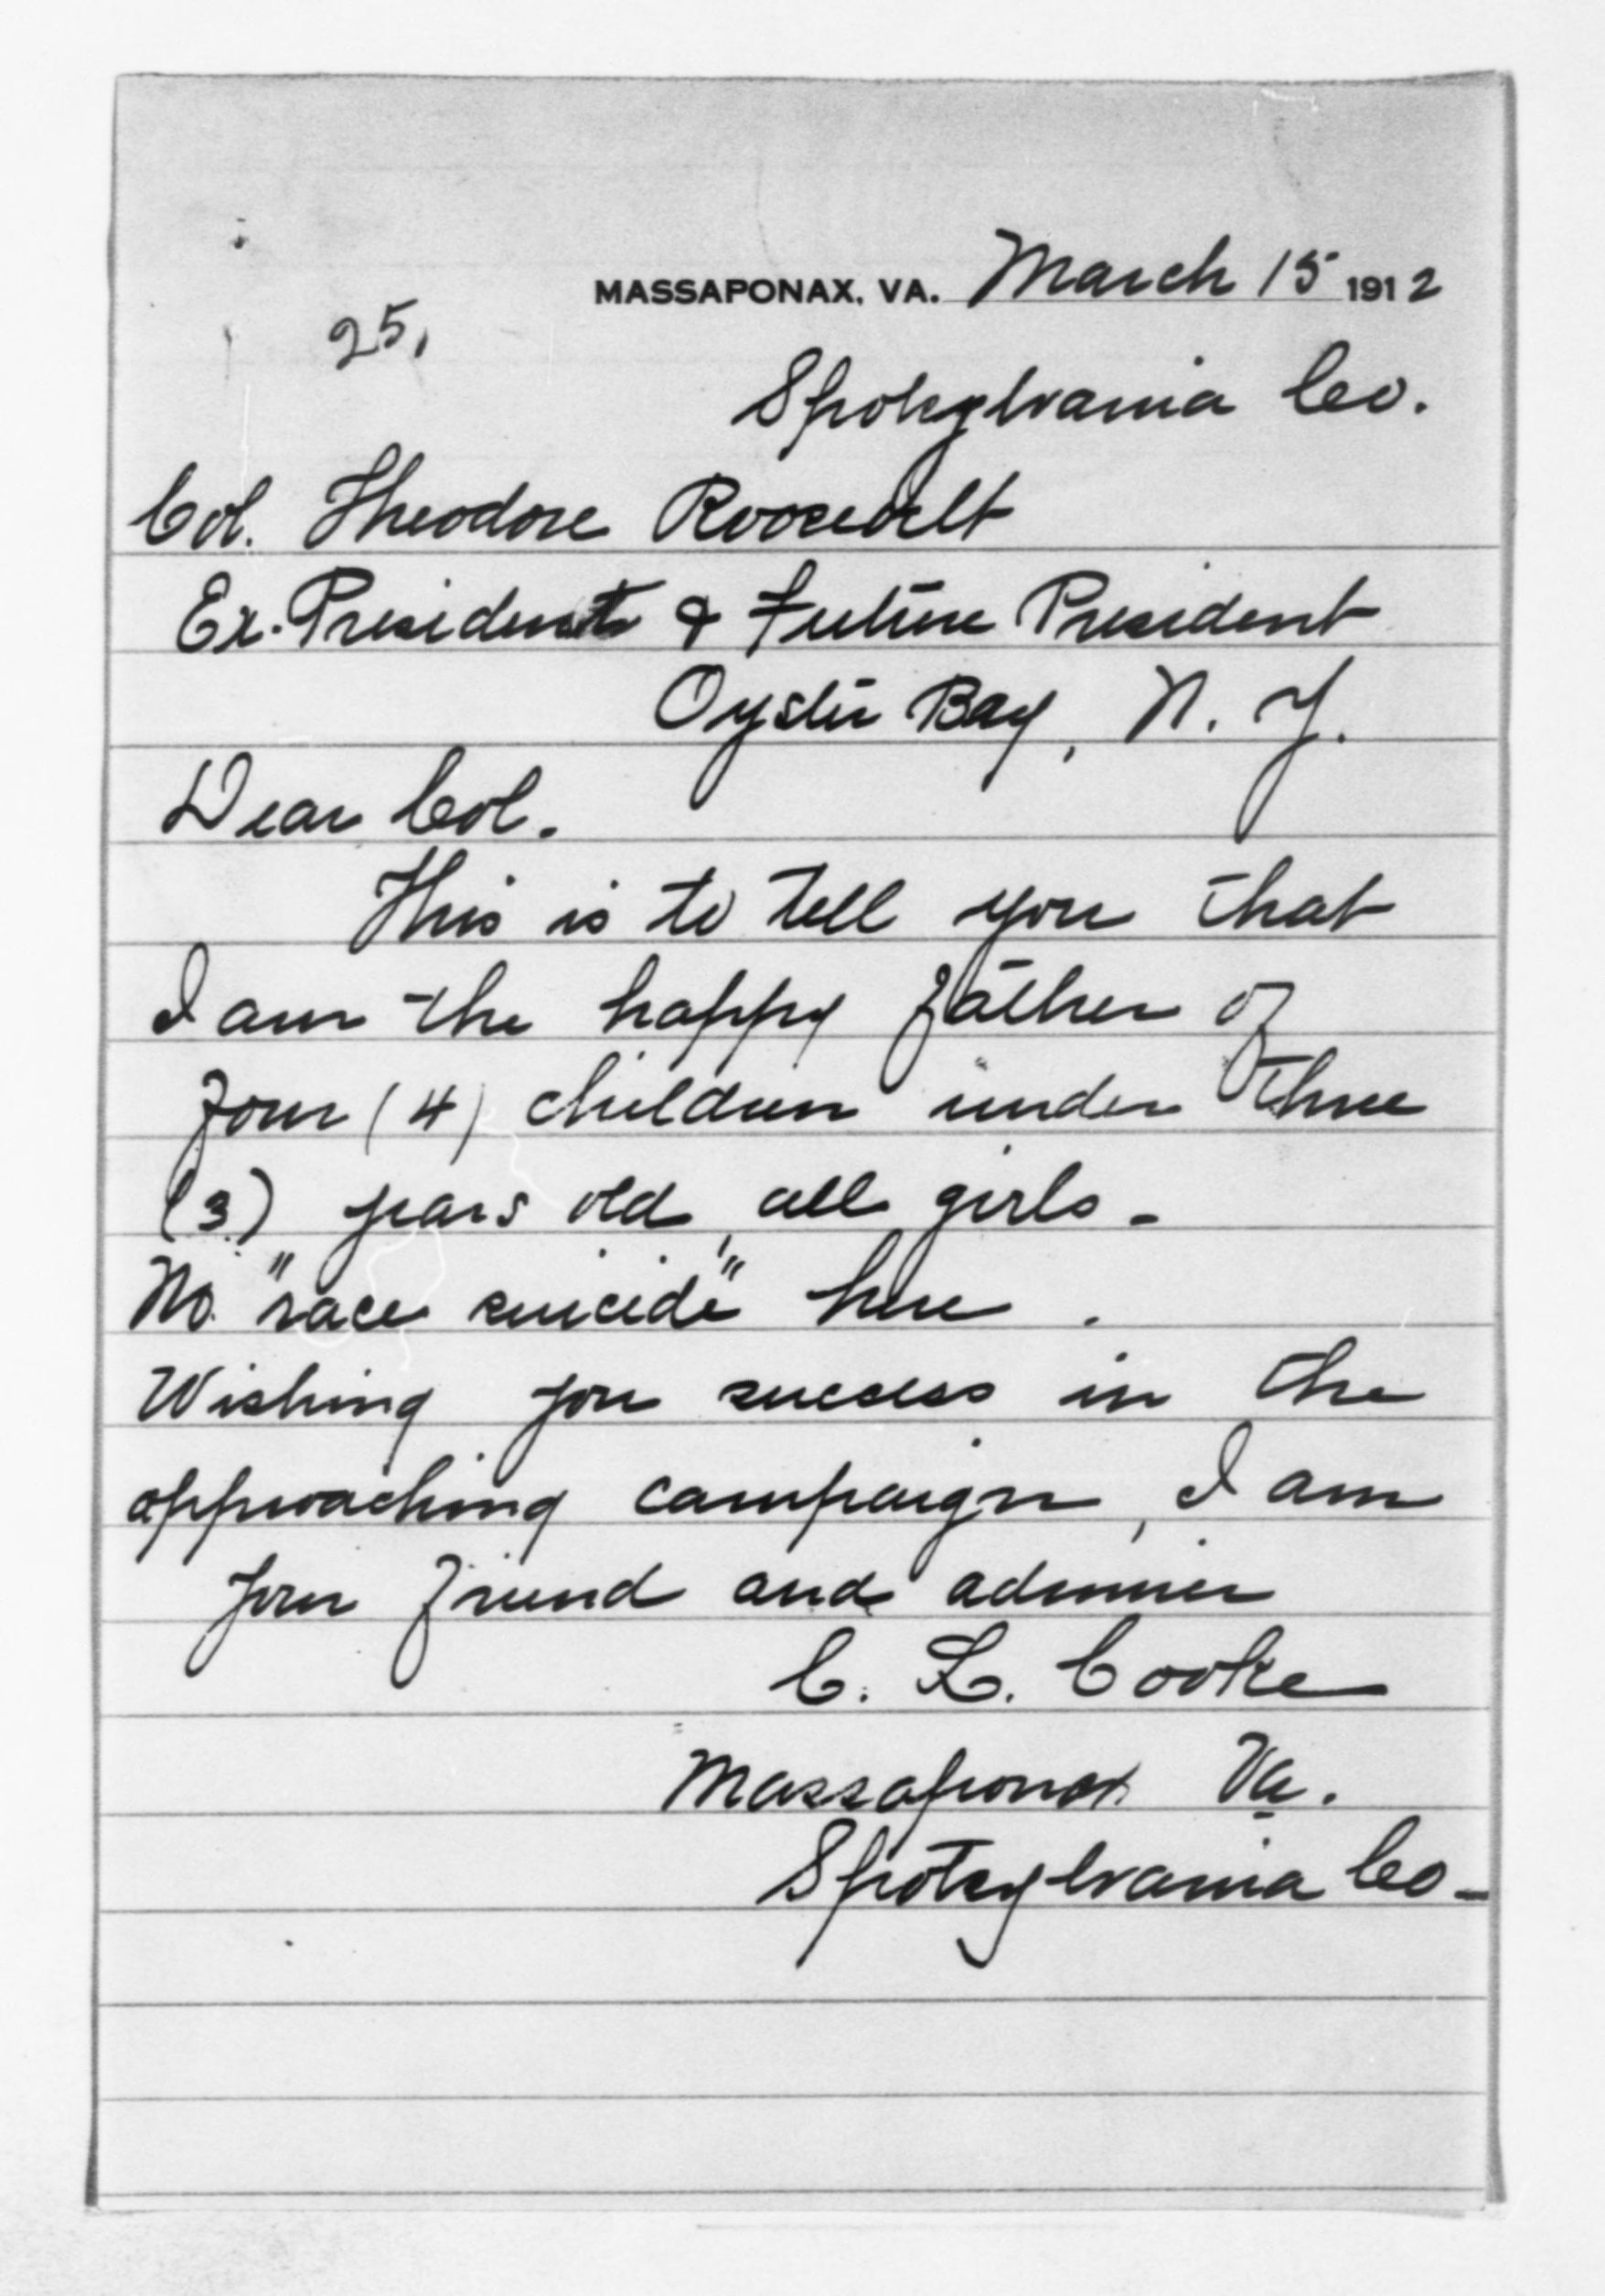 MASSAPONAX, VA. March 15 1912
25,
Spotsylvania Co.
Col. Theodore Roosevelt
Ex-President & Future President
Oyster Bay, N. Y.
Dear Col.
This is to tell you that
I am the happy father of
four (4) children under three
(3) years old, all girls -
No "race suicide" here.
Wishing you success in the
approaching campaign, I am
your friend and admirer
C. L. Cooke
Massaponax Va.
Spotsylvania Co-